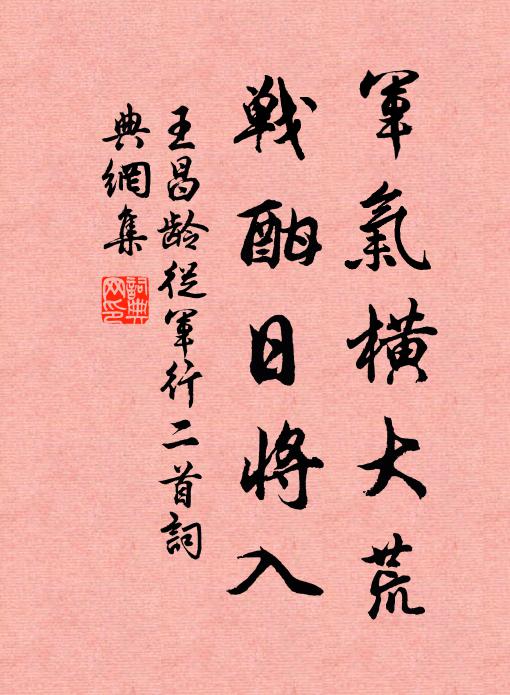 軍氣橫大荒
戰酣日將入
王昌龄從軍行二首詞
典網集
詞典网印